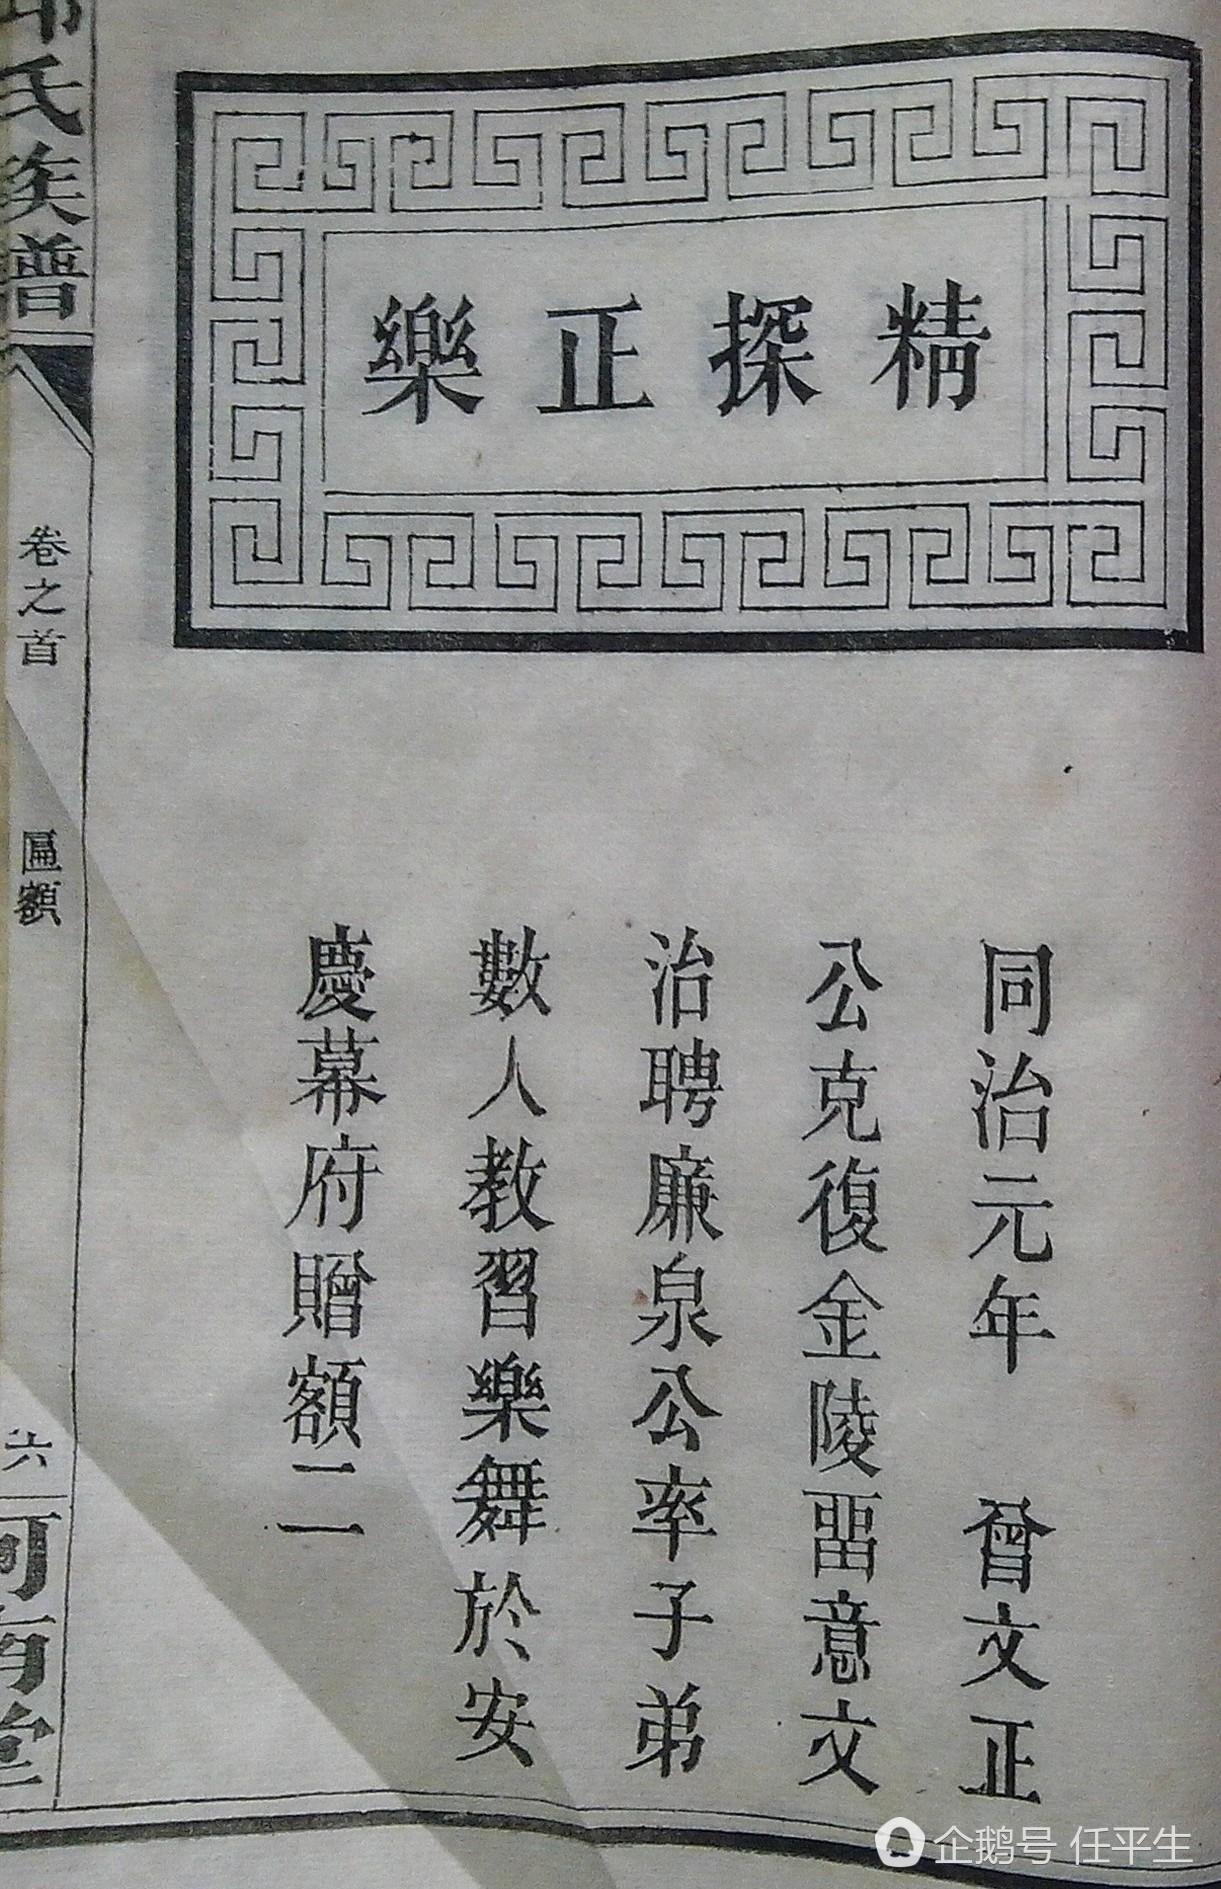 精探正樂
同治元年 曾文正
公克復金陵畱意文
治聘廉泉公率子弟
數人教習樂舞於安
慶幕府贈額二
邱氏族譜
卷之首
匾額
六
河南堂
企鹅号 任平生